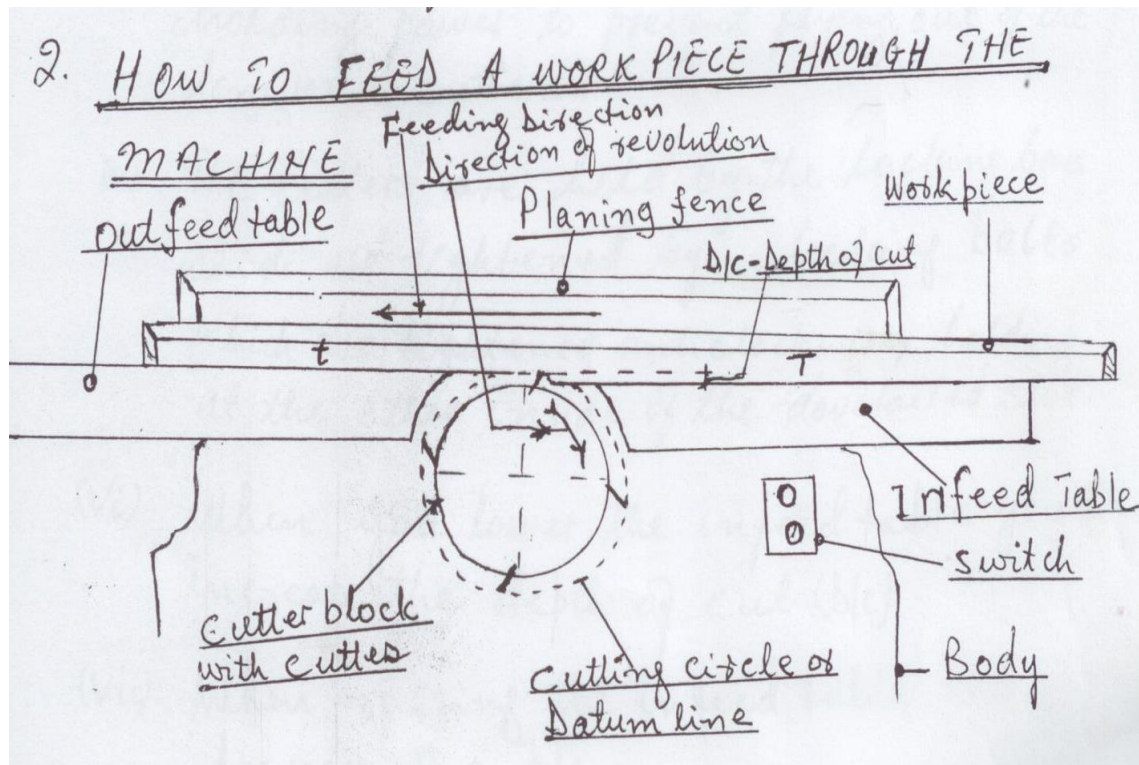 2. HOW TO FEED A WORKPIECE THROUGH THE
MACHINE
Feeding Direction
Direction of revolution
Planing fence
Workpiece
Outfeed table
D/C-Depth of cut
t
T
Infeed Table
Switch
Cutter block
with cuttes
Cutting circle or
Datum line
Body